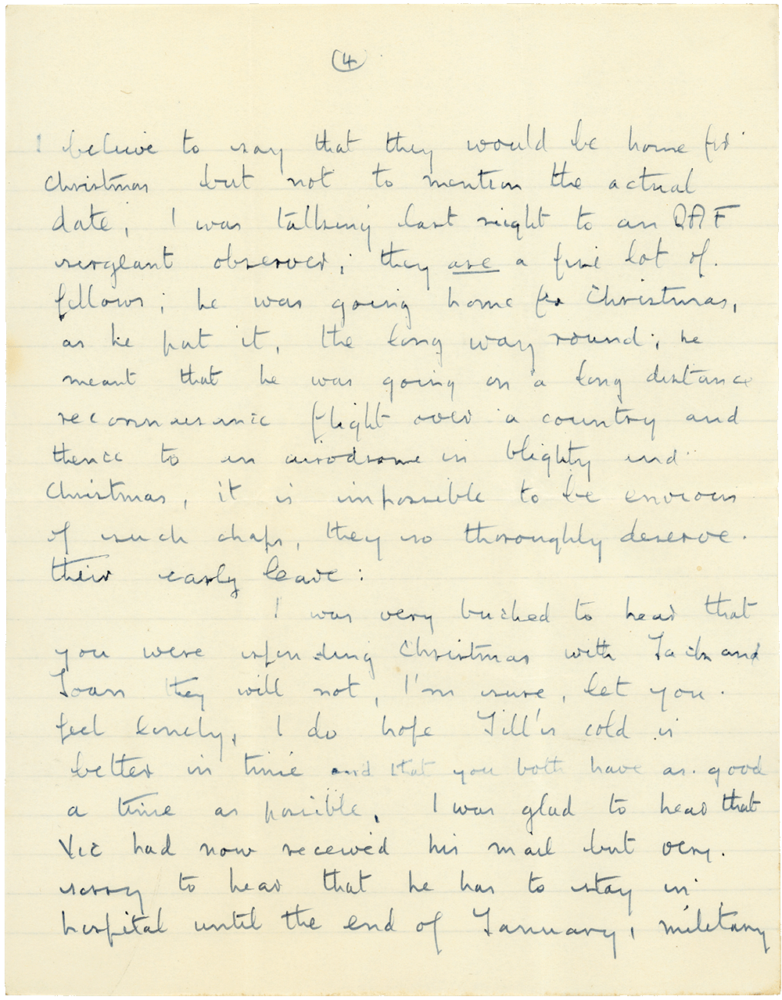 4
I believe to say that they would be home for
Christmas but not to mention the actual
date, I was talking last night to an RAF
sergeant observer; they are a fine lot of
fellows; he was going home for Christmas,
as he put it, the long way round; he
meant that he was going on a long distance
reconnaissance flight over a country and
thence to an aerodrome in blighty and
Christmas, it is impossible to be envious
of such chaps, they so thoroughly deserve
their early leave:
I was very bucked to hear that
you were spending Christmas with Jack and
Joan they will not, I'm sure, let you
feel lonely, I do hope Jill's cold is
better in time and that you both have as good
a time as possible, I was glad to hear that
Vic had now received his mail but very
sorry to hear that he has to stay in
hospital until the end of January, military